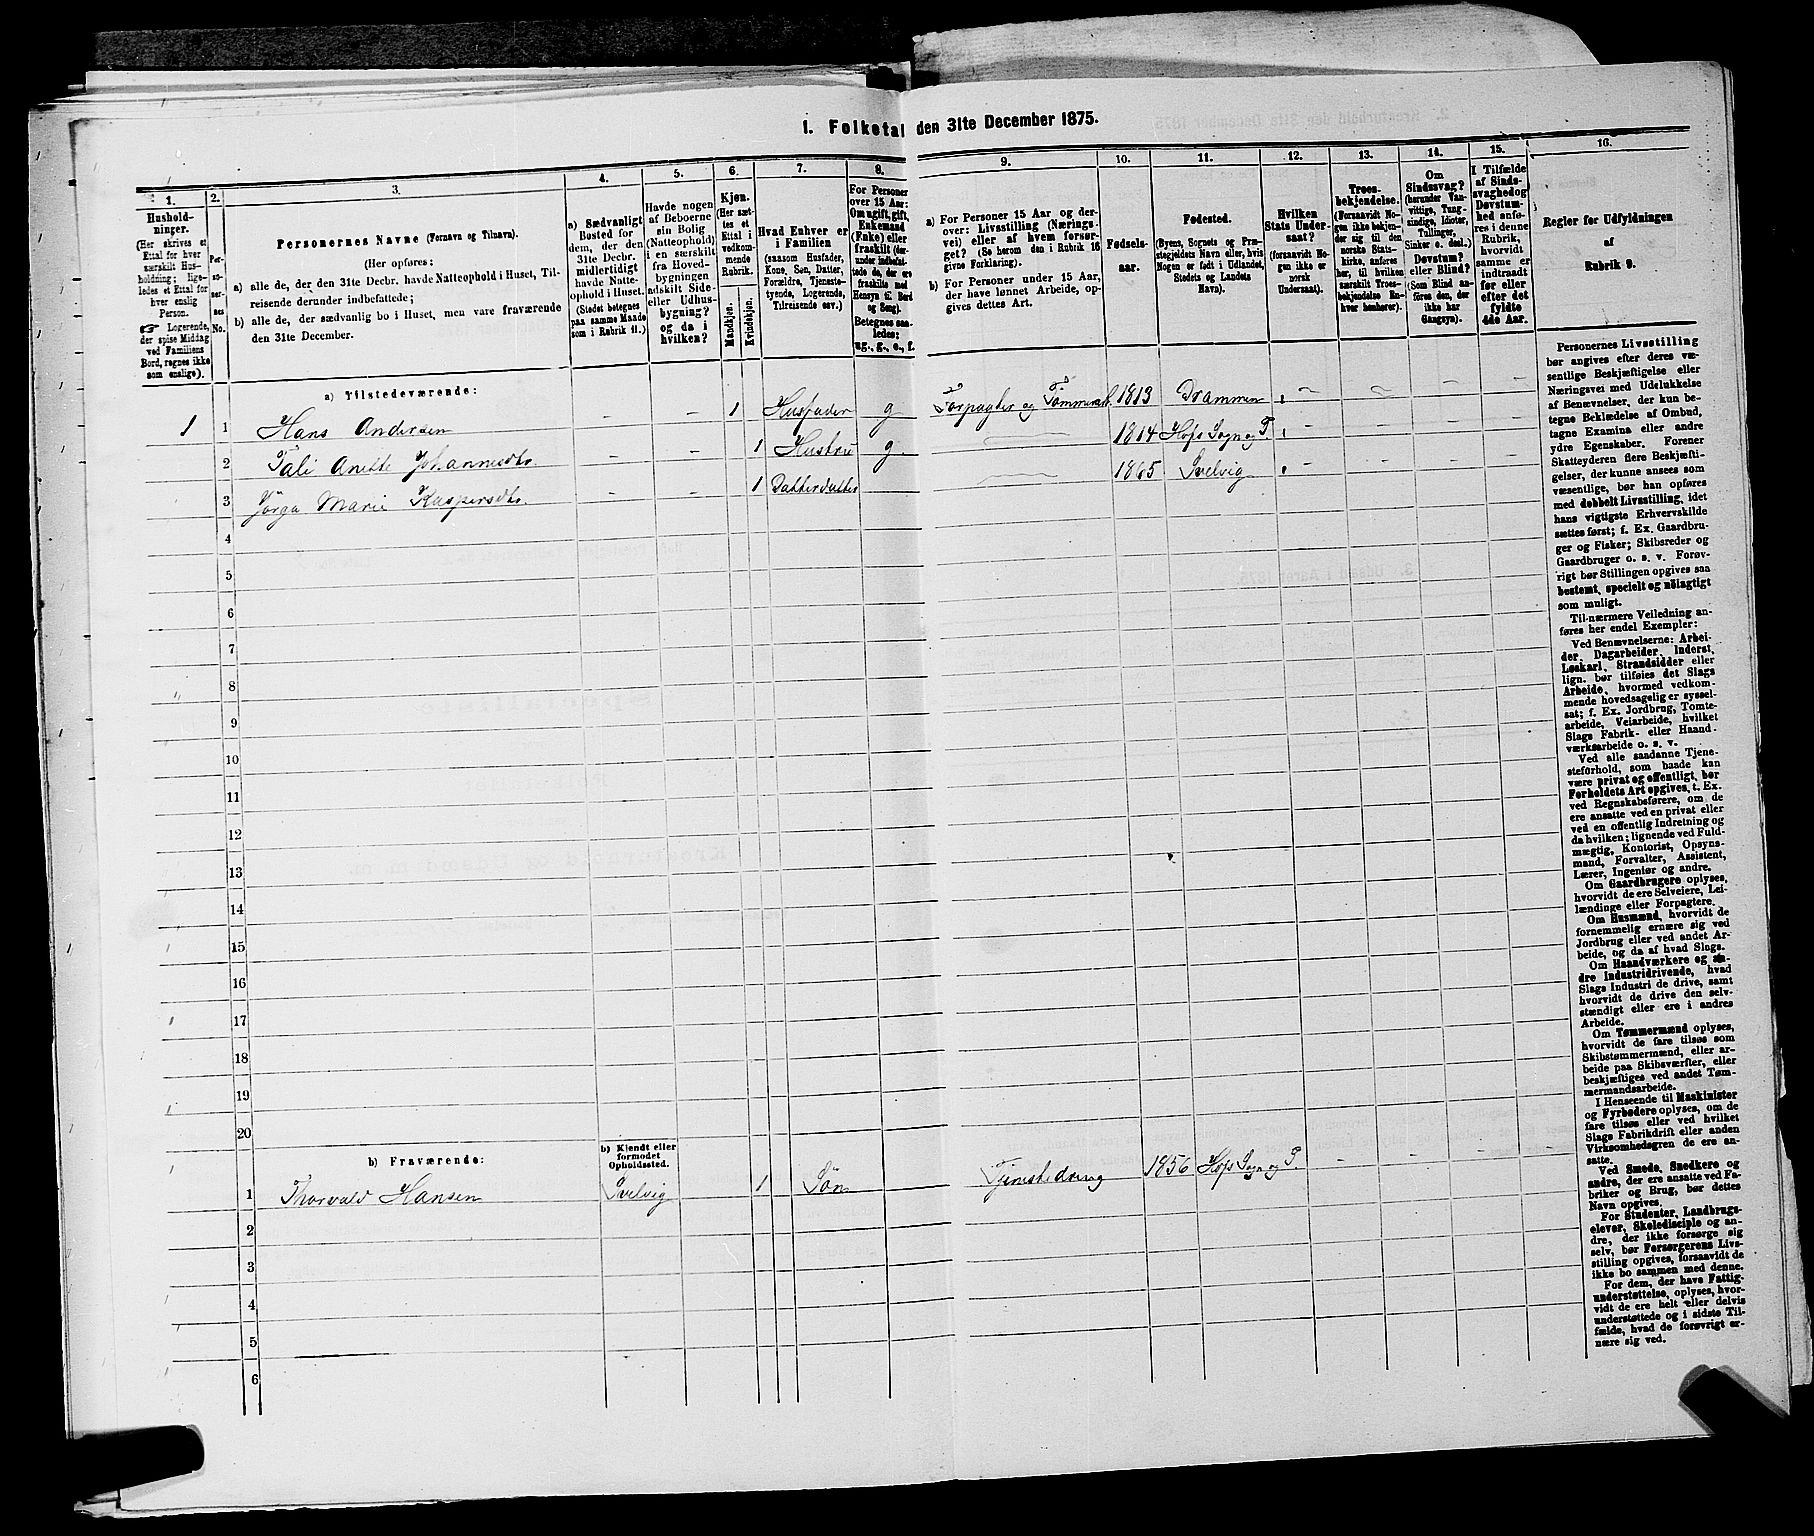 1. Folketal den 31te December 1875.
1.
Hushold-
ninger.
(Her skrives et
Ettal for hver
særskilt Hus-
holdning; lige-
ledes et Ettal for
hver enslig
Person.
☞ Logerende,
der spise Middag
ved Familiens
Bord, regnes ikke
som enslige).
2.
Per-
so-
ner-
nes
No.
3.
Personernes Navne (Fornavn og Tilnavn).
(Her opføres:
a) alle de, der den 31te Decbr. havde Natteophold i Huset, Til-
reisende derunder indbefattede;
b) alle de, der sædvanlig bo i Huset, men vare fraværende
den 31te December.
4.
a) Sædvanligt
Bosted for
dem, der den
31te Decbr.
midlertidigt
havde Natte-
ophold i Huset.
(Stedet betegnes
paa samme Maade
som i Rubrik 11.)
5.
Havde nogen
af Beboerne
sin Bolig
(Natteophold)
i en særskilt
fra Hoved-
bygningen
adskilt Side-
eller Udhus-
bygning?
og da i
hvilken?
6.
Kjøn.
(Her sæt-
tes et
Ettal i
vedkom-
mende
Rubrik.
Mandkjøn.
Kvindekjøn.
7.
Hvad Enhver er
i Familien
(saasom Husfader,
Kone, Søn, Datter,
Forældre, Tjeneste-
tyende, Logerende,
Tilreisende osv.)
8.
For Personer
over 15 Aar:
Om ugift, gift,
Enkemand
(Enke) eller
fraskilt (der-
under indbefat-
tede de, der ere
fraskilte med
Hensyn til Bord
og Seng).
Betegnes saa-
ledes:
ug., g., e., f.
9.
a) For Personer 15 Aar og der-
over: Livsstilling (Nærings-
vei) eller af hvem forsør-
get? (Se herom den i Rubrik 16
givne Forklaring).
b) For Personer under 15 Aar,
der have lønnet Arbeide, op-
gives dettes Art.
10.
Fødsels-
aar.
11.
Fødested.
(Byens, Sognets og Præ-
stegjeldets Navn eller, hvis
Nogen er født i Udlandet,
Stedets og Landets
Navn).
12.
Hvilken
Stats Under-
saat?
(forsaavidt No-
gen ikke er
norsk
Undersaat).
13.
Troes-
bekjendelse.
(Forsaavidt No-
gen ikke bekjen-
der sig til den
norske Stats-
kirke, anføres
her, til hvilken
særskilt Troes-
bekjendelse En-
hver henhører).
14.
Om
Sindssvag?
(herunder Van-
vittige, Tung-
sindige, Idioter,
Tullinger,
Sinker o. desl.)
Døvstum?
eller Blind?
(Som Blind an-
føres den, der
ikke har
Gangsyn).
15.
I Tilfælde
af Sinds-
svaghed og
Døvstum-
hed anfø-
res i denne
Rubrik,
hvorvidt
samme er
indtraadt
før eller
efter det
fyldte
4de Aar.
16.
Regler for Udfyldningen
af
Rubrik 9.
a) Tilstedeværende:
1 1 Hans Andersen – – 1 Husfader g Forpagter og Tømmerm. 1813 Drammen
2 Tali Anette Johannesdtr. – – 1 Hustru g. 1814 Hofs Sogn og P.
3 Jørga Marie Kaspersdtr. – – 1 Datterdatter 1865 Svelvig
4
5
6
7
8
9
10
11
12
13
14
15
16
17
18
19
20
b) Fraværende:
b) Kjendt eller
formodet
Opholdssted.
1 Thorvald Hansen Svelvig 1 Søn Tjenestedreng 1856 Hofs Sogn og P
2
3
4
5
6
Personernes Livsstilling
bør angives efter deres væ-
sentlige Beskjæftigelse eller
Næringsvei med Udelukkelse
af Benævnelser, der kun be-
tegne Beklædelse af Ombud,
tagne Examina eller andre
ydre Egenskaber. Forener
Skatteyderen flere Beskjæfti-
gelser, der kunne ansees som
væsentlige, bør han opføres
med dobbelt Livsstilling, idet
hans vigtigste Erhvervskilde
sættes først; f. Ex. Gaardbru-
ger og Fisker; Skibsreder og
Gaardbruger o. s. v. Forøv-
rigt bør Stillingen opgives saa
bestemt, specielt og nöiagtigt
som muligt.
Til nærmere Veiledning an-
føres her endel Exempler:
Ved Benævnelserne: Arbei-
der, Dagarbeider, Inderst,
Løskarl, Strandsidder eller
lign. bør tilføies det Slags
Arbeide, hvormed vedkom-
mende hovedsagelig er syssel-
sat; f. Ex. Jordbrug, Tomte-
arbeide, Veiarbeide, hvilket
Slags Fabrik- eller Haand-
værksarbeide o. s. v.
Ved alle saadanne Tjene-
steforhold, som baade kan
være privat og offentligt, bør
Forholdets Art opgives, t. Ex.
ved Regnskabsførere, om de
ere ansatte ved en privat eller
ved en offentlig Indretning og
da hvilken; lignende ved Fuld-
mægtig, Kontorist, Opsyns-
mand, Forvalter, Assistent,
Lærer, Ingeniør og andre.
Om Gaardbrugere oplyses,
hvorvidt de ere Selveiere, Lei-
lændinge eller Forpagtere.
Om Husmænd, hvorvidt de
fornemmelig ernære sig ved
Jordbrug eller ved andet Ar-
beide, og da af hvad Slags.
Om Haandværkere og an-
dre Industridrivende, hvad
Slags Industri de drive, samt
hvorvidt de drive den selv-
stændigt eller ere i andres
Arbeide.
Om Tømmermænd oplyses,
hvorvidt de fare tilsøs som
Skibstømmermænd, eller ar-
beide paa Skibsværfter, eller
beskjæftiges ved andet Tøm-
mermandsarbeide.
I Henseende til Maskinister
og Fyrbødere oplyses, om de
fare tilsøs eller ved hvilket
Slags Fabrikdrift eller anden
Virksomhedsgren de ere an-
satte.
Ved Smede, Snedkere og
andre, der ere ansatte ved Fa-
briker og Brug, bør dettes
Navn opgives.
For Studenter, Landbrugs-
elever, Skoledisciple og an-
dre, der ikke forsørge sig
selv, bør Forsørgerens Livs-
stilling opgives, forsaavidt de
ikke bo sammen med denne.
For dem, der have Fattig-
understøttelse, oplyses, hvor-
vidt de ere helt eller delvis
understøttede og i sidste Til-
fælde, hvad de forøvrigt er-
nære sig ved.